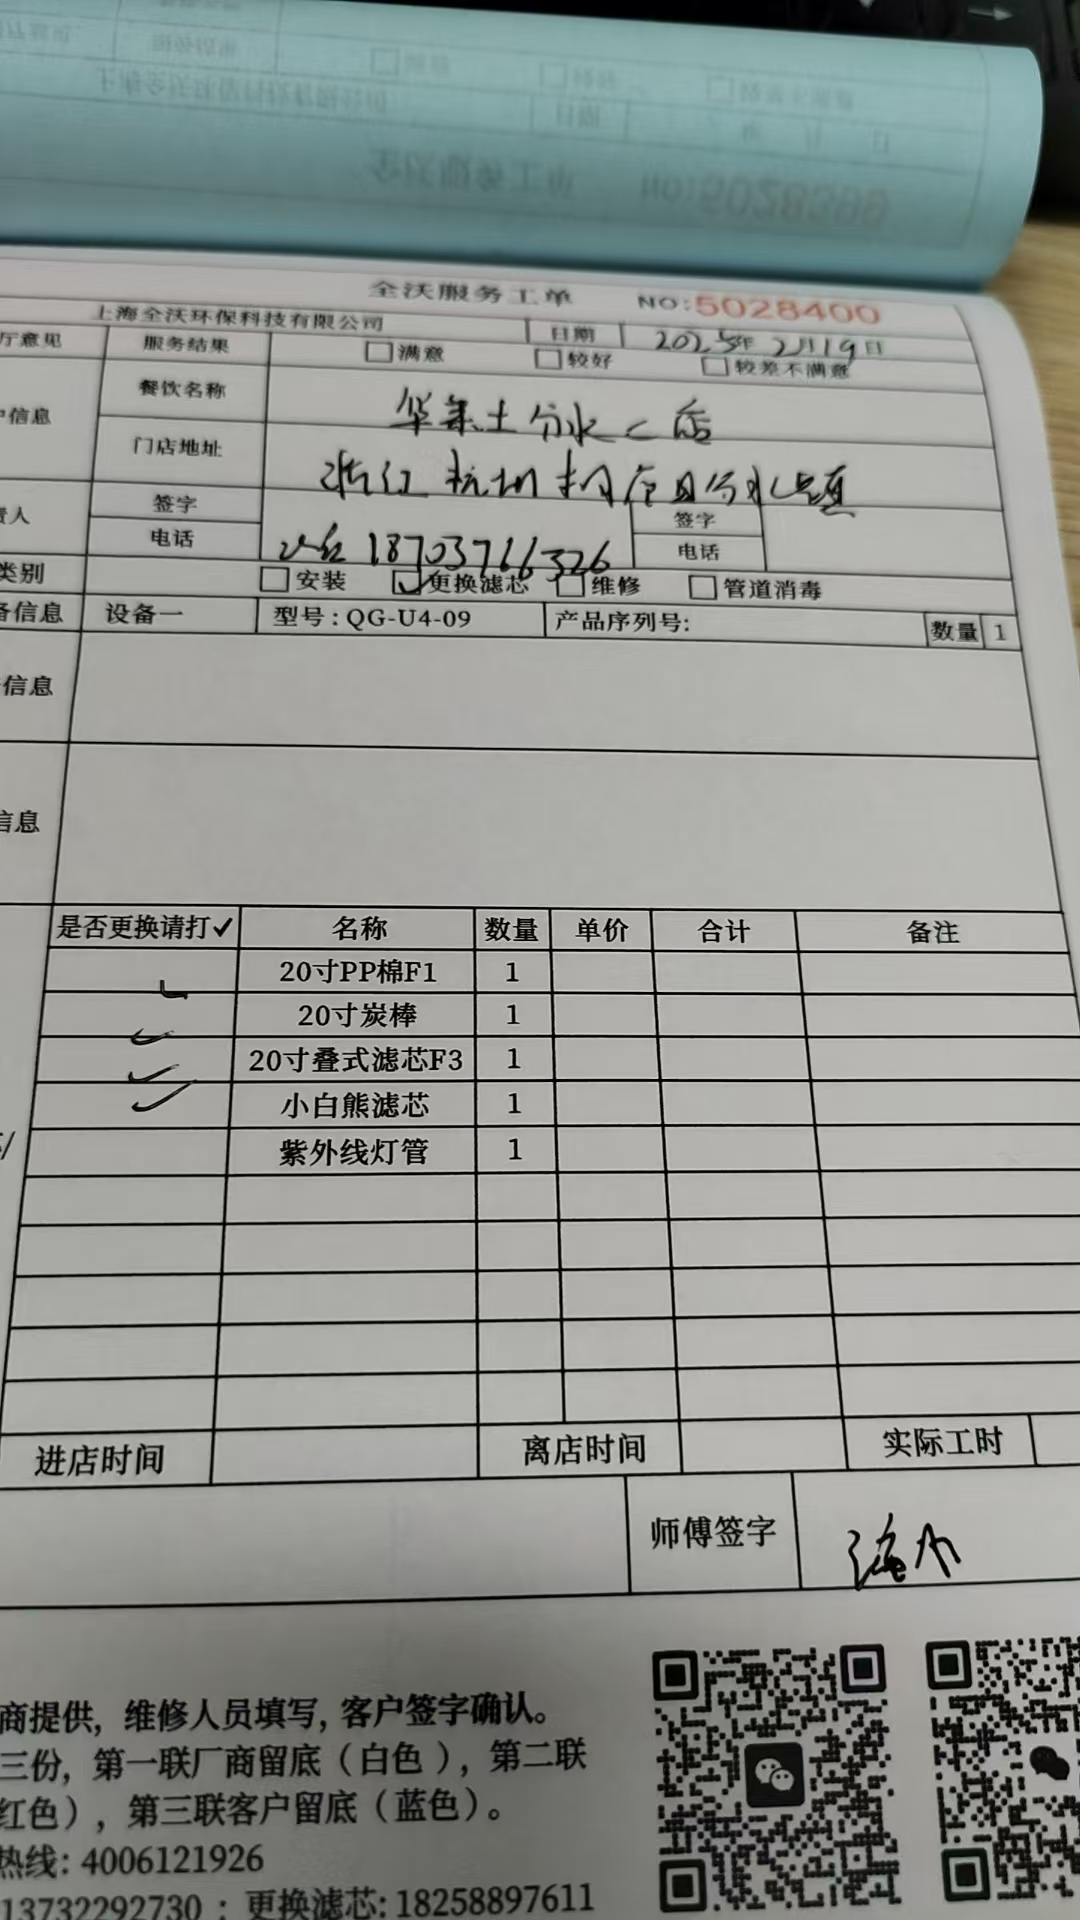 全沃服务工单 NO:5028400
上海全沃环保科技有限公司 日期 2025年 2月19日
厅意见 服务结果 满意 较好 较差不满意
信息 餐饮名称 华莱士分水二店
门店地址 浙江杭州桐庐县分水镇
责人 签字 签字
电话 18703766326 电话
类别 安装 ✓更换滤芯 维修 管道消毒
备信息 设备一 型号:QG-U4-09 产品序列号: 数量 1
信息
信息
是否更换请打✓ 名称 数量 单价 合计 备注
✓ 20寸PP棉F1 1
✓ 20寸炭棒 1
✓ 20寸叠式滤芯F3 1
✓ 小白熊滤芯 1
紫外线灯管 1
进店时间 离店时间 实际工时
师傅签字
商提供, 维修人员填写, 客户签字确认。
三份, 第一联厂商留底(白色), 第二联
红色), 第三联客户留底(蓝色)。
热线: 4006121926
13732292730 ; 更换滤芯: 18258897611